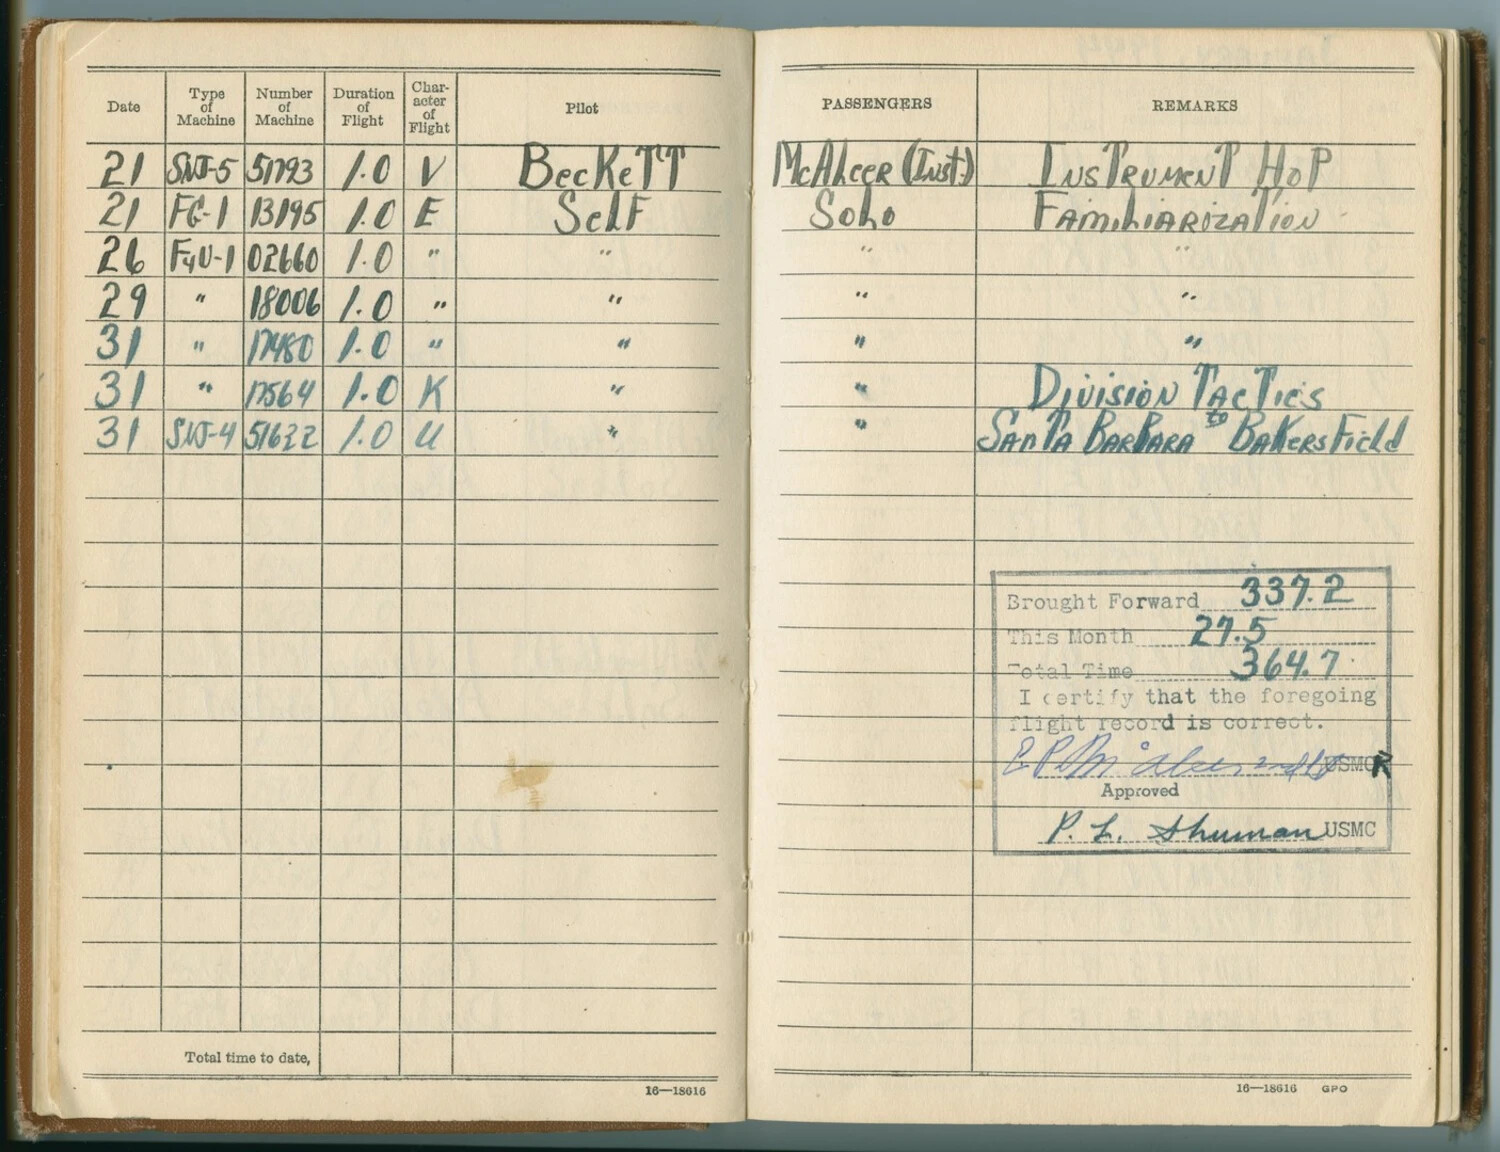 Date Type of Machine Number of Machine Duration of Flight Char-acter of Flight Pilot PASSENGERS REMARKS
21 SNJ-5 51793 1.0 V Beckett McAleer (Inst.) Instrument Hop
21 FG-1 13195 1.0 E Self Solo Familiarization
26 F4U-1 02660 1.0 " " " "
29 " 18006 1.0 " " " "
31 " 17480 1.0 " " " "
31 " 17564 1.0 K " " Division Tactics
31 SNJ-4 51622 1.0 U " " Santa Barbara to Bakersfield
Brought Forward 337.2
This Month 27.5
Total Time 364.7
I certify that the foregoing
flight record is correct.
USMCR
Approved
P. L. Shuman USMC
Total time to date,
16—18616
16—18616 GPO